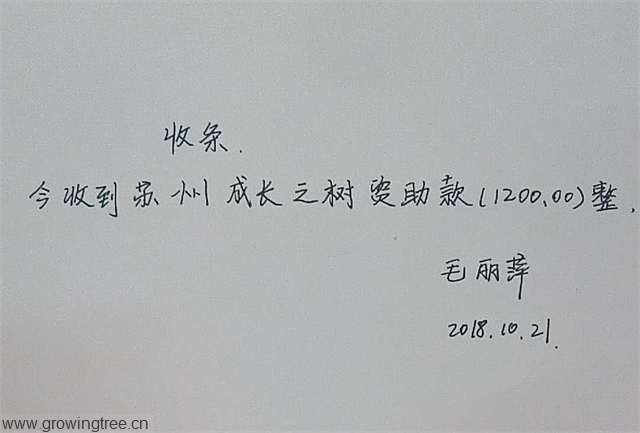 收条.
今收到苏州成长之树资助款(1200.00)整.
毛丽萍
2018.10.21.
www.growingtree.cn